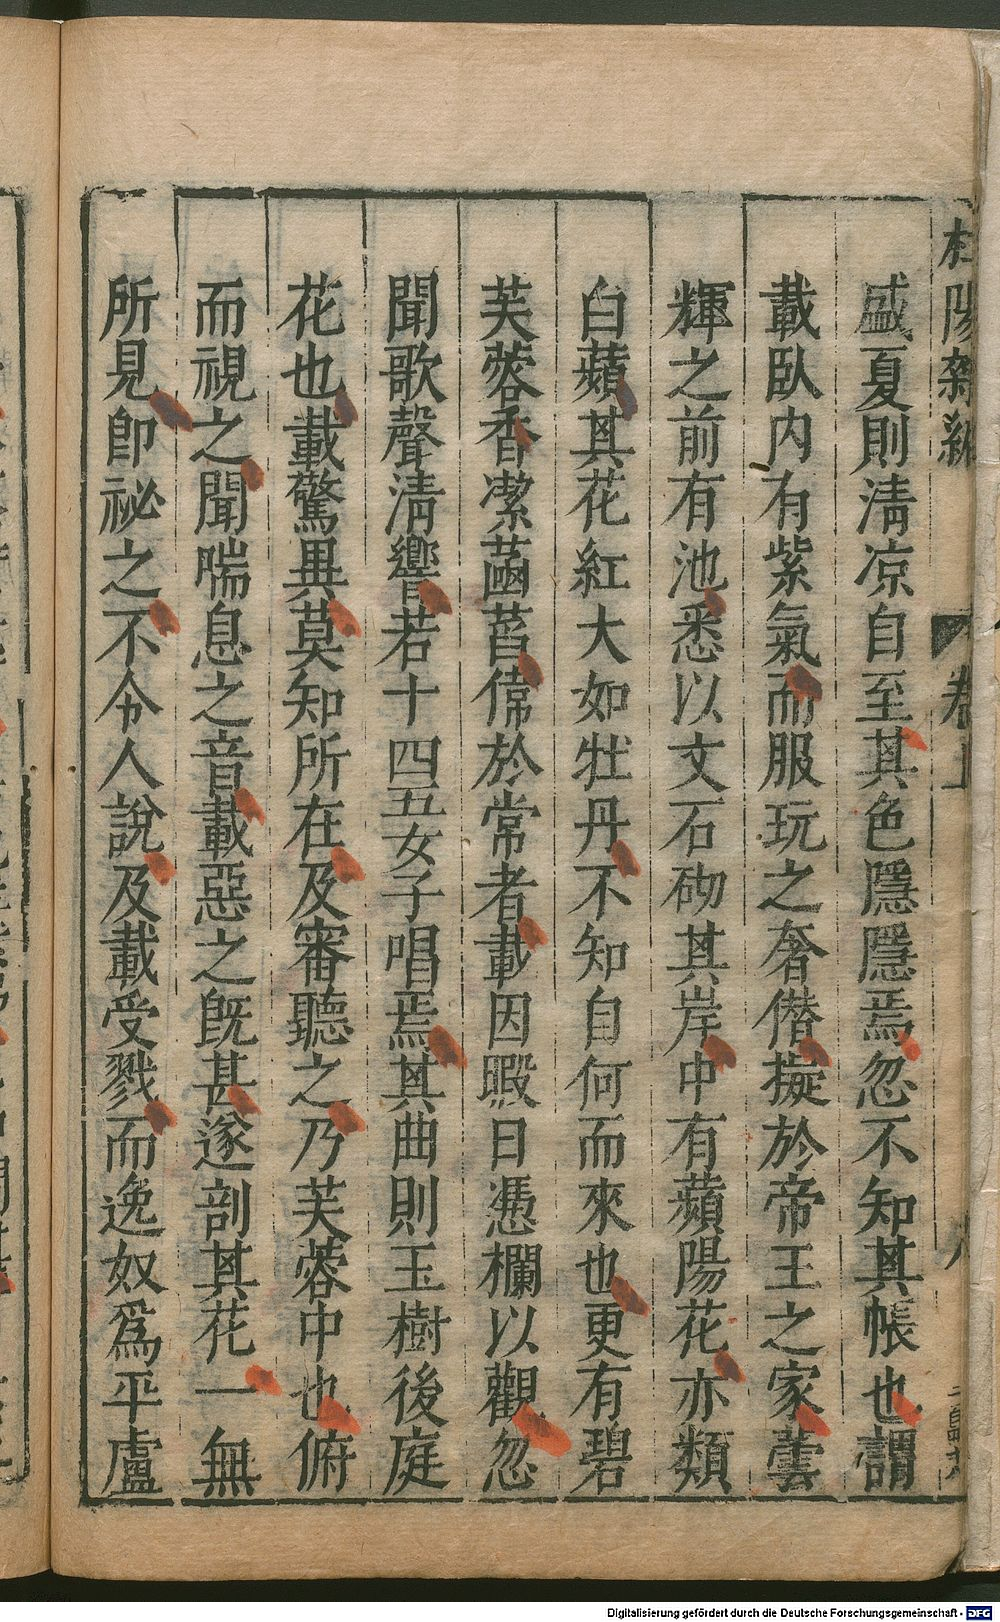 杜陽雜編
卷上
八
盛夏則淸凉自至其色隱隱焉忽不知其帳也謂
載臥内有紫氣而服玩之奢僣擬於帝王之家蕓
輝之前有池悉以文石砌其岸中有蘋陽花亦類
白蘋其花紅大如牡丹不知自何而來也更有碧
芙蓉香潔菡萏偉於常者載因暇日憑欄以觀忽
聞歌聲淸響若十四五女子唱焉其曲則玉樹後庭
花也載驚異莫知所在及審聽之乃芙蓉中也俯
而視之聞喘息之音載惡之旣甚遂剖其花一無
所見卽祕之不令人說及載受戮而逸奴爲平盧
Digitalisierung gefördert durch die Deutsche Forschungsgemeinschaft - DFG